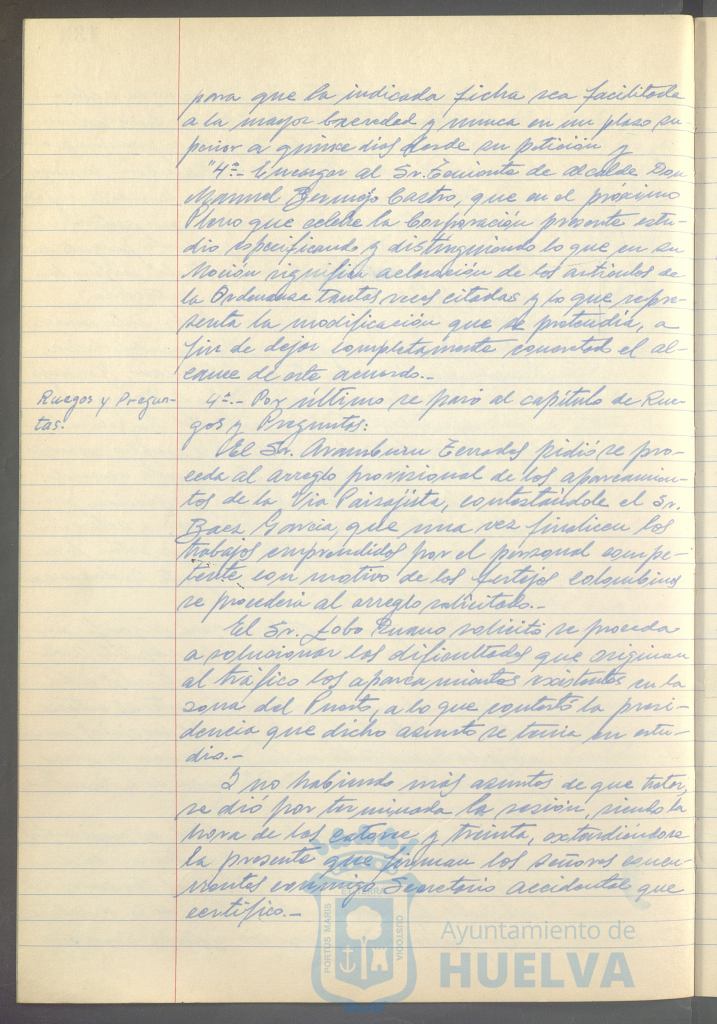 para que la indicada ficha sea facilitada
a la mayor brevedad y nunca en un plazo su-
perior a quince dias desde su petición y
"4º.- Encargar al Sr. Teniente de alcalde Don
Manuel Bermejo Castro, que en el próximo
Pleno que celebre la Corporación presente estu-
dio especificando y distinguiendo lo que en su
Moción significa aclaración de los articulos de
la Ordenanza tantas veces citadas y lo que repre-
senta la modificación que se pretendia, a
fin de dejar completamente concretado el al-
cance de este acuerdo.-
Ruegos y Pregun-
tas:
4º.- Por último se pasó al capítulo de Rue-
gos y Preguntas:
El Sr. Aramburu Terrades pidió se pro-
ceda al arreglo provisional de los aparcamien-
tos de la Via Paisajista, contestándole el Sr.
Baez Garcia, que una vez finalicen los
trabajos emprendidos por el personal compe-
tente con motivo de los festejos colombinos
se procederia al arreglo solicitado.-
El Sr. Lobo Ruano solicitó se proceda
a solucionar las dificultades que originan
al tráfico los aparcamientos existentes en la
zona del Puerto, a lo que contestó la presi-
dencia que dicho asunto se tenia en estu-
dio.-
Y no habiendo más asuntos de que tratar,
se dió por terminada la sesión, siendo la
hora de las catorce y treinta, extendiéndose
la presente que firman los señores concu-
rrentes conmigo Secretario accidental que
certifico.-
PORTUS MARIS
ET TERRAE
CUSTODIA
Ayuntamiento de
HUELVA